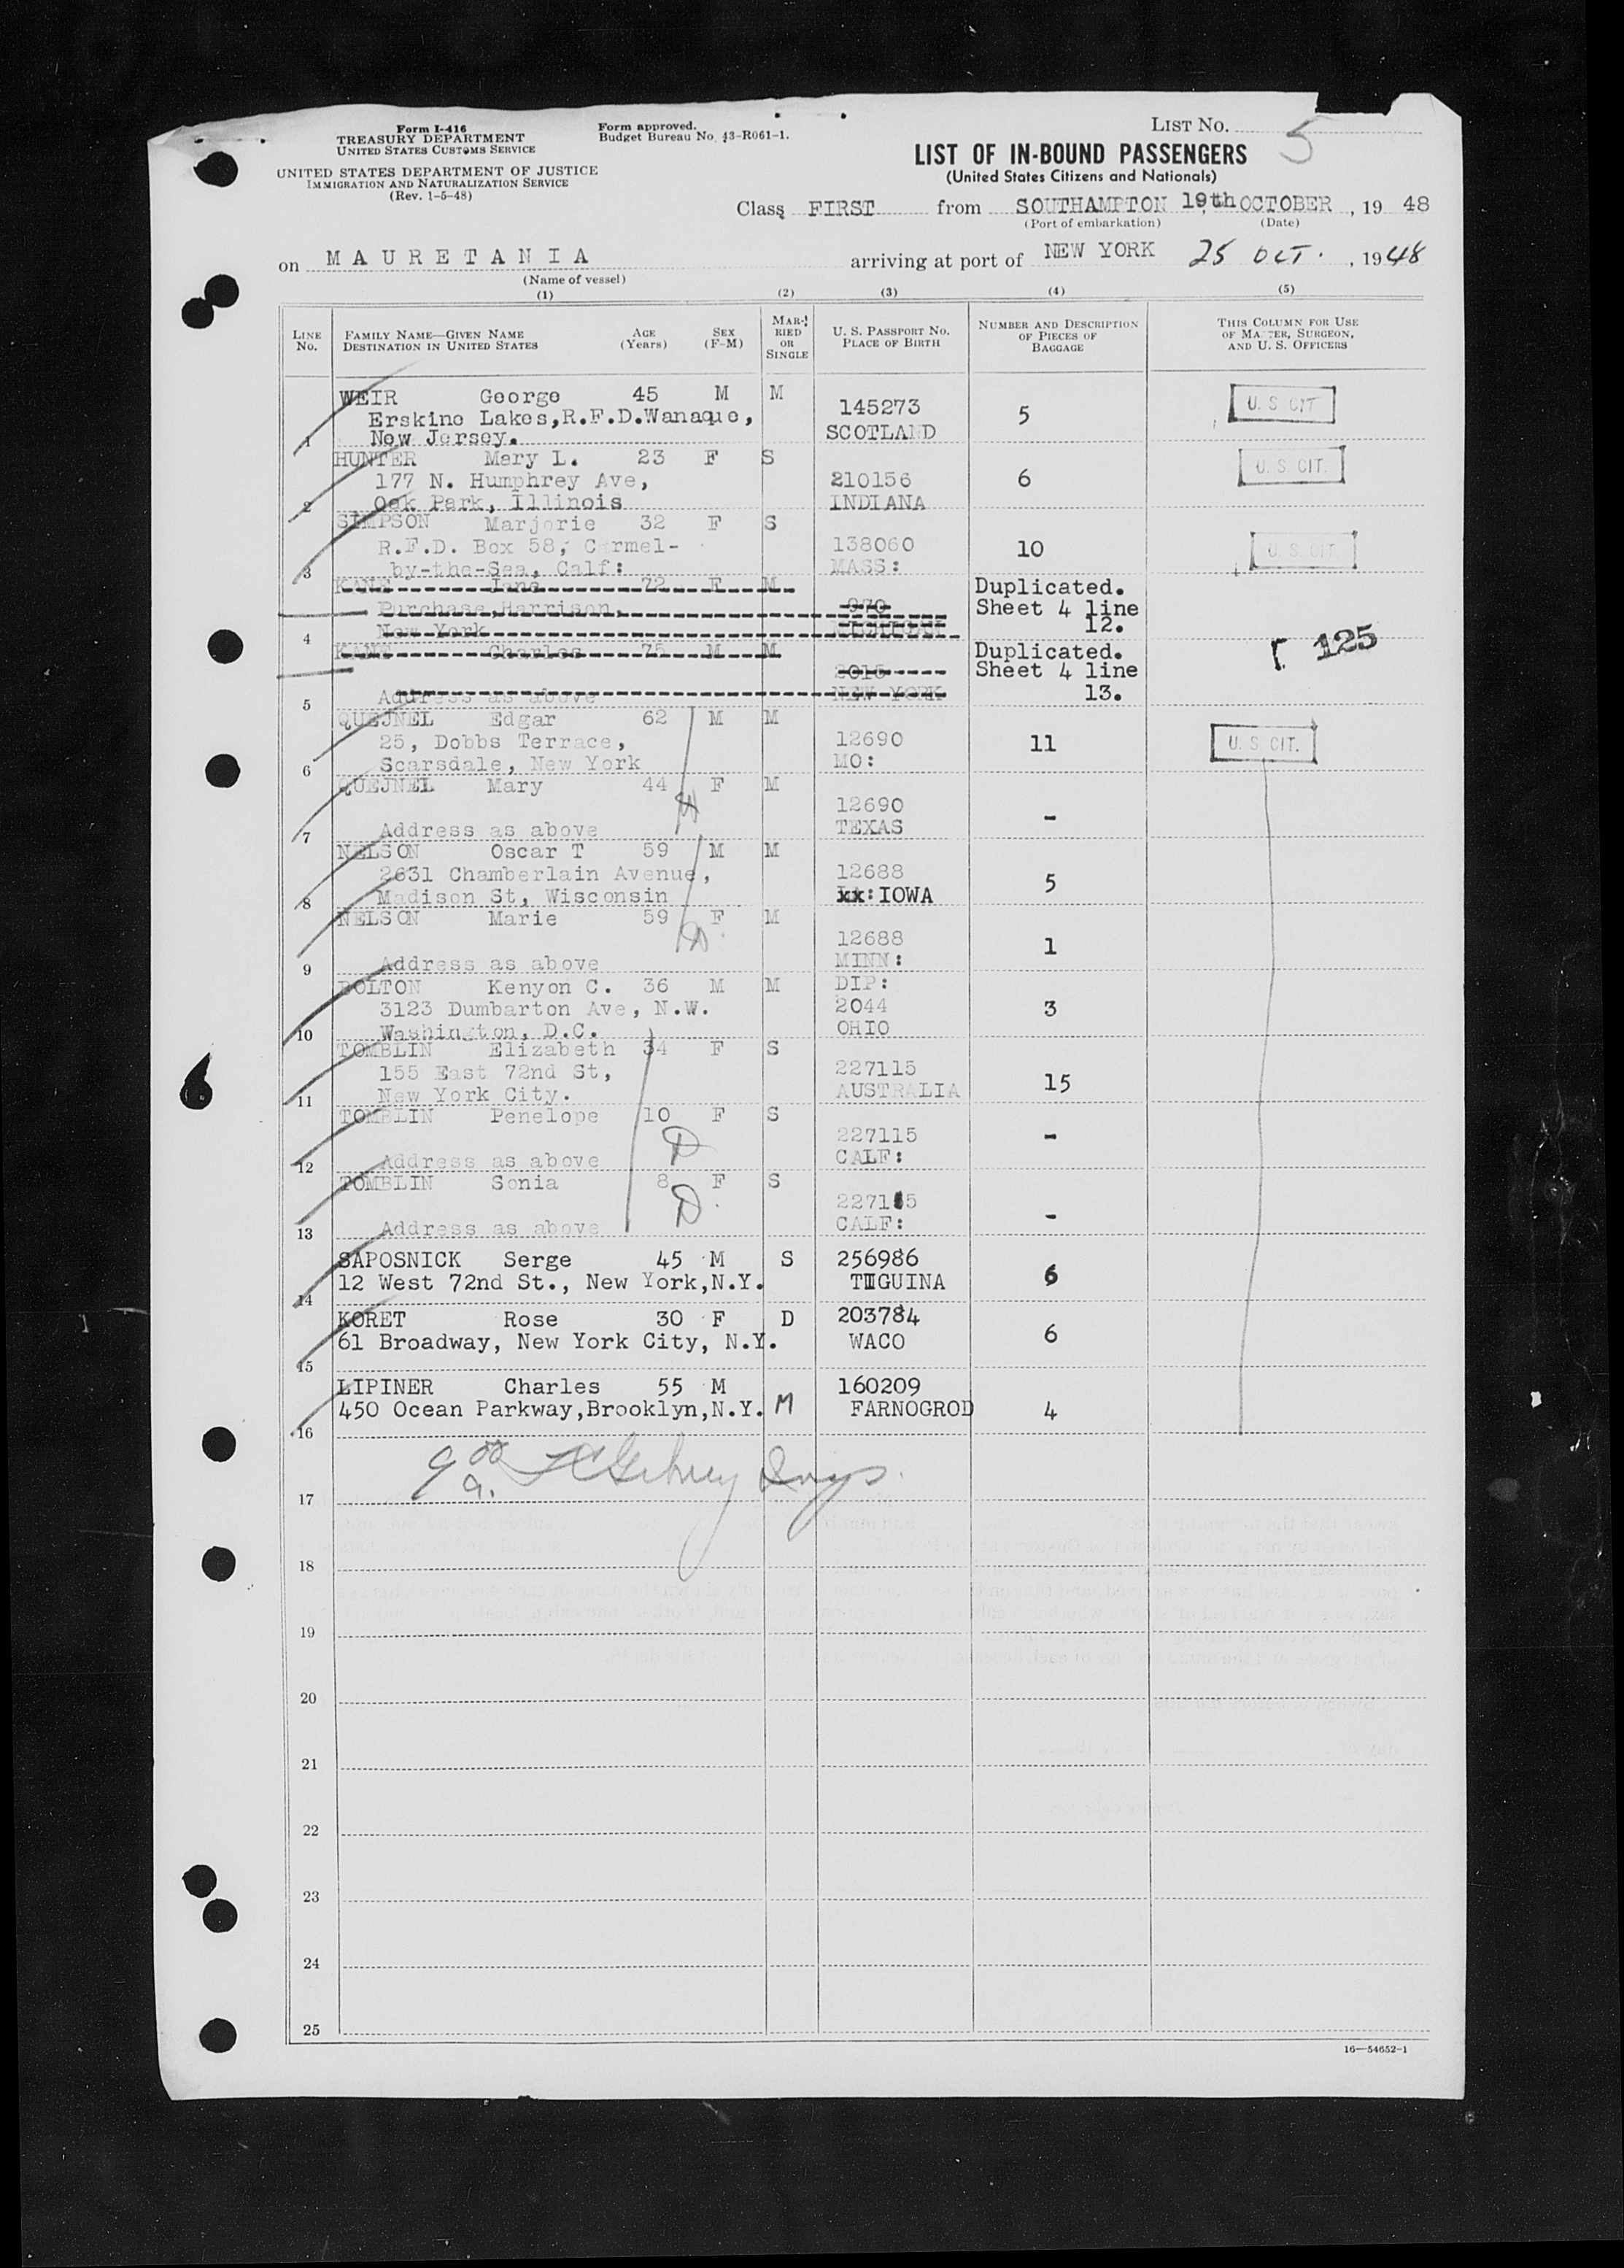 Form I-416
TREASURY DEPARTMENT
UNITED STATES CUSTOMS SERVICE
UNITED STATES DEPARTMENT OF JUSTICE
IMMIGRATION AND NATURALIZATION SERVICE
(Rev. 1-5-48)
Form approved.
Budget Bureau No. 43-R061-1.
LIST No. 5
LIST OF IN-BOUND PASSENGERS
(United States Citizens and Nationals)
Class FIRST from SOUTHAMPTON 19th OCTOBER, 19 48
(Port of embarkation) (Date)
on MAURETANIA arriving at port of NEW YORK 25 OCT., 1948
(Name of vessel)
(1) (2) (3) (4) (5)
LINE No.
FAMILY NAME—GIVEN NAME
DESTINATION IN UNITED STATES
AGE (Years)
SEX (F-M)
MARRIED OR SINGLE
U. S. PASSPORT NO.
PLACE OF BIRTH
NUMBER AND DESCRIPTION
OF PIECES OF
BAGGAGE
THIS COLUMN FOR USE
OF MASTER, SURGEON,
AND U. S. OFFICERS
WEIR George 45 M M
145273 5 U. S CIT
Erskine Lakes,R.F.D.Wanaque,
SCOTLAND
1 New Jersey.
HUNTER Mary L. 23 F S
177 N. Humphrey Ave, 210156 6 U. S CIT.
2 Oak Park, Illinois INDIANA
SIMPSON Marjorie 32 F S
R.F.D. Box 58, Carmel- 138060 10 U. S. CIT.
3 by-the-Sea, Calf: MASS:
KANE Jane 72 F M Duplicated.
Purchase,Harrison, 970 Sheet 4 line
4 New York MICHIGAN 12.
KANE Charles 75 M M Duplicated.
2015 Sheet 4 line [ 125
5 Address as above NEW YORK 13.
QUEJNEL Edgar 62 M M
25, Dobbs Terrace, 12690 11 U. S. CIT.
6 Scarsdale, New York MO:
QUEJNEL Mary 44 F M
12690 -
7 Address as above TEXAS
NELSON Oscar T 59 M M
2631 Chamberlain Avenue, 12688 5
8 Madison St, Wisconsin xx: IOWA
NELSON Marie 59 F M
12688 1
9 Address as above MINN:
BOLTON Kenyon C. 36 M M DIP:
3123 Dumbarton Ave, N.W. 2044 3
10 Washington, D.C. OHIO
TOMBLIN Elizabeth 34 F S
155 East 72nd St, 227115 15
11 New York City. AUSTRALIA
TOMBLIN Penelope 10 F S
D 227115 -
12 Address as above CALF:
TOMBLIN Sonia 8 F S
D. 227115 -
13 Address as above CALF:
SAPOSNICK Serge 45 M S 256986
12 West 72nd St., New York,N.Y. TIGUINA 6
14
KORET Rose 30 F D 203784
61 Broadway, New York City, N.Y. WACO 6
15
LIPINER Charles 55 M 160209
450 Ocean Parkway,Brooklyn,N.Y. M FARNOGROD 4
16
9 00 a.
17
18
19
20
21
22
23
24
25
16—54652-1